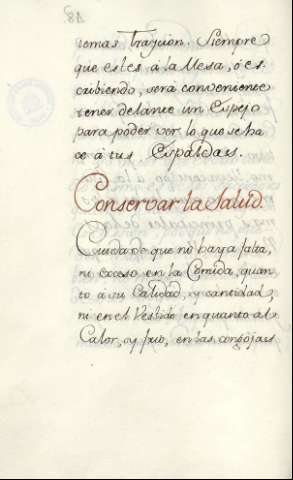 temas Traycion. Siempre
que estes à la Mesa, ó es
cribiendo, sera conveniente
tener delante un Espejo
para poder ver lo que se ha
ce à tus Espaldas.
Conservar la Salud.
Cuida de que no haya falta,
ni exceso en la Comida, quan
to à su Calidad, y cantidad,
ni en el Vestido en quanto al
Calor, y frio, en las congojas